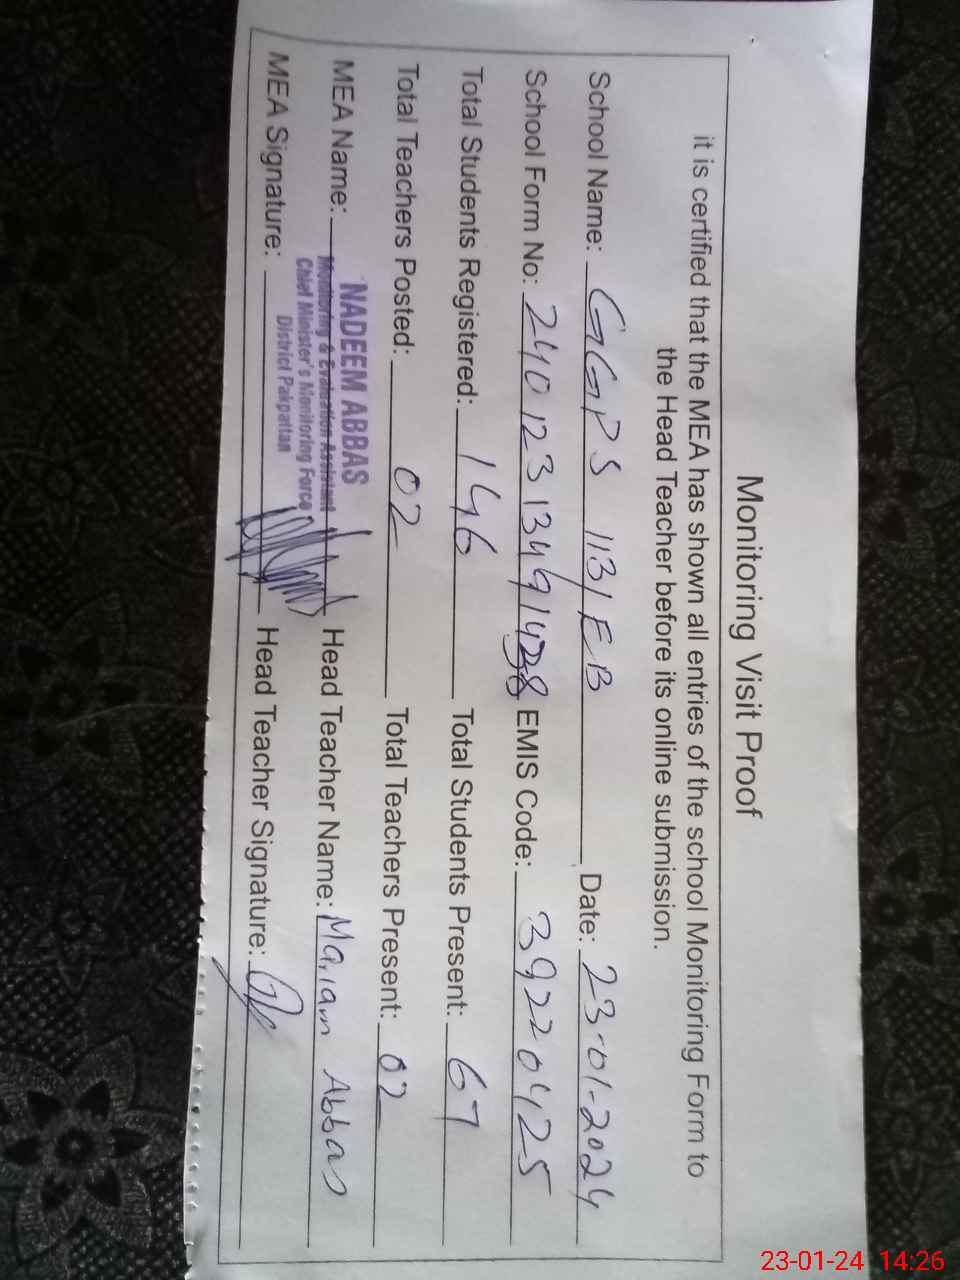 Monitoring Visit Proof
it is certified that the MEA has shown all entries of the school Monitoring Form to
the Head Teacher before its online submission.
School Name: GGPS 113/EB Date: 23-01-2024
School Form No: EMIS Code: 39220425
Total Students Registered: 146 Total Students Present: 67
Total Teachers Posted: 02 Total Teachers Present: 02
MEA Name: NADEEM ABBAS Head Teacher Name: Mariam Abbas
Monitoring & Evaluation Assistant
Chief Minister's Monitoring Force
District Pakpattan
MEA Signature: Head Teacher Signature:
23-01-24 14:26